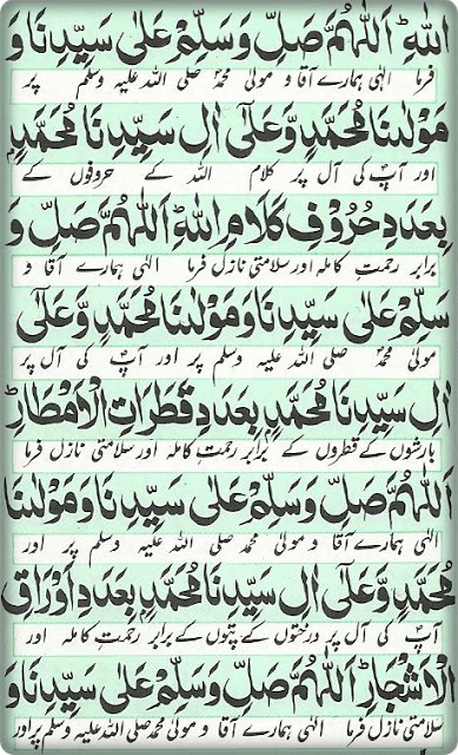 اللّٰهِؕ اَللّٰهُمَّ صَلِّ وَسَلِّمْ عَلٰى سَيِّدِنَا وَ
فرما الٰہی ہمارے آقا و مولیٰ محمدؐ صلی اللہ علیہ وسلم پر
مَوْلٰنَا مُحَمَّدٍ وَّعَلٰٓى اٰلِ سَيِّدِنَا مُحَمَّدٍ
اور آپؐ کی آل پر کلام اللہ کے حروفوں کے
بِعَدَدِ حُرُوْفِ كَلَامِ اللّٰهِؕ اَللّٰهُمَّ صَلِّ وَ
برابر رحمتِ کاملہ اور سلامتی نازل فرما الٰہی ہمارے آقا و
سَلِّمْ عَلٰى سَيِّدِنَا وَمَوْلٰنَا مُحَمَّدٍ وَّعَلٰٓى
مولیٰ محمدؐ صلی اللہ علیہ وسلم پر اور آپؐ کی آل پر
اٰلِ سَيِّدِنَا مُحَمَّدٍۢ بِعَدَدِ قَطَرَاتِ الْاَمْطَارِؕ
بارشوں کے قطروں کے برابر رحمتِ کاملہ اور سلامتی نازل فرما
اَللّٰهُمَّ صَلِّ وَسَلِّمْ عَلٰى سَيِّدِنَا وَمَوْلٰنَا
الٰہی ہمارے آقا و مولیٰ محمدؐ صلی اللہ علیہ وسلم پر اور
مُحَمَّدٍ وَّعَلٰٓى اٰلِ سَيِّدِنَا مُحَمَّدٍۢ بِعَدَدِ اَوْرَاقِ
آپؐ کی آل پر درختوں کے پتوں کے برابر رحمتِ کاملہ اور
الْاَشْجَارِؕ اَللّٰهُمَّ صَلِّ وَسَلِّمْ عَلٰى سَيِّدِنَا وَ
سلامتی نازل فرما الٰہی ہمارے آقا و مولیٰ محمدؐ صلی اللہ علیہ وسلم پر اور